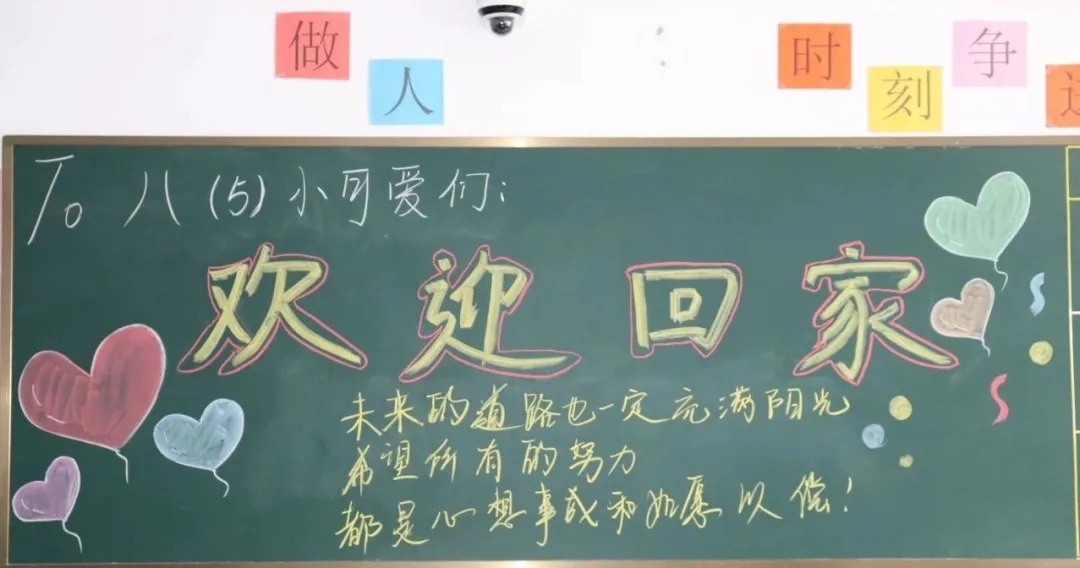 做人 时刻争
To 八(5)小可爱们:
欢迎回家
未来的道路也一定充满阳光
希望所有的努力
都是心想事成和如愿以偿!